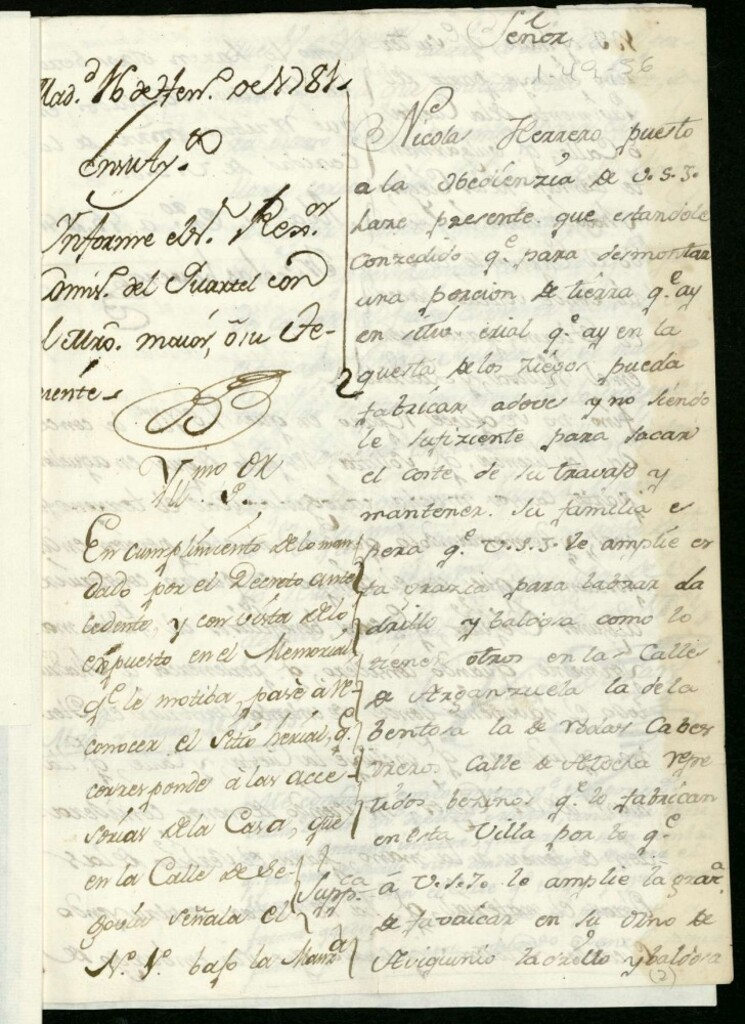 Señor
1-49-36
Mad.d 16 de Hen.o de 1781
en su Ay.to
Informe el Sr. Rex.or
Comis.o del Quartel con
el Mro. maior, ô su The-
niente
Yllmo Sr.
En cumplimiento de lo man
dado por el Decreto ante
cedente, y con vista de lo
expuesto en el Memorial
q.e le motiba, pasè a re-
conocer el sitio herial, q.e
corresponde a las acce-
sorias de la Casa, que
en la Calle de Se-
govia señala el
N.o 1.o bajo la Manz.a
Nicolas Herrero puesto
a la Obedienzia de V.S.I.
haze presente que estandole
conzedido q.e para desmontar
una porcion de tierra q.e ay
en sitio erial q.e ay en la
questa de los ziegos pueda
fabricar adove y no siendo
le sufiziente para sacar
el coste de su travajo y
mantener su familia es
pera q.e V.S.I. le amplie es
ta grazia para labrar la
drillo y baldosa como lo
tienen otros en las Calles
de Arganzuela la de la
bentosa la de Rodas Cabes
treros Calle de Atocha repe
tidos bezinos q.e lo fabrican
en esta Villa por lo q.e
Supp.ca
â V.S.I. le amplie la graz.a
de favricar en su Orno de
ladrillo y baldosa
(2)